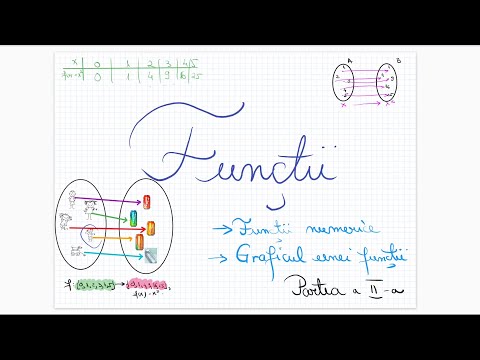 x 0 1 2 3 4 5
f(x)=x² 0 1 4 9 16 25
A B
Funcții
→ Funcții numerice
→ Graficul unei funcții
Partea a II-a
f: {0,1,2,3,4,5} →
f(x)=x²